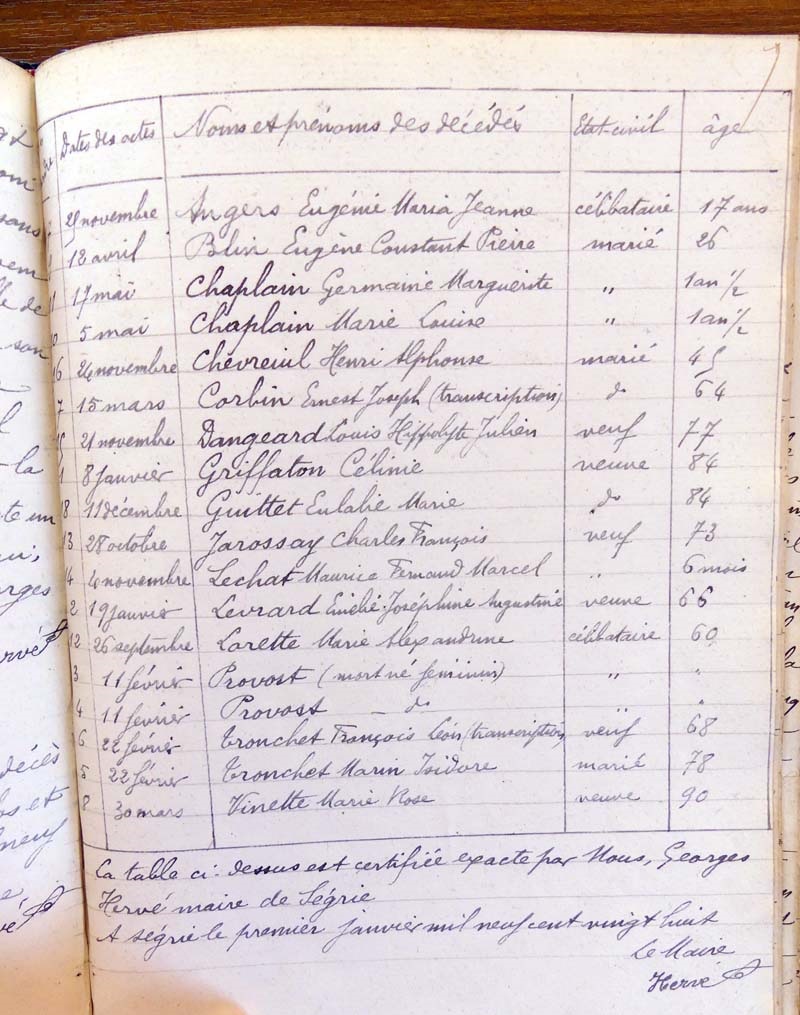 Dates des actes Noms et prénoms des décédés Etat-civil âge
novembre Angers Eugénie Maria Jeanne célibataire 17 ans
12 avril Blin Eugène Constant Pierre marié 26
17 mai Chaplain Germaine Marguerite " 1 an 1/2
5 mai Chaplain Marie Louise " 1 an 1/2
16 novembre Chevreuil Henri Alphonse marié 45
7 15 mars Corbin Ernest Joseph (transcription) do 64
21 novembre Dangeard Louis Hippolyte Julien veuf 77
1 8 janvier Griffaton Célinie veuve 84
18 11 décembre Guittet Eulalie Marie do 84
13 28 octobre Jarossay Charles François veuf 73
14 4 novembre Lechat Maurice Fernand Marcel " 6 mois
2 19 janvier Levrard Joséphine Augustine veuve 66
12 26 septembre Lorette Marie Alexandrine célibataire 60
3 11 février Provost (mort né féminin) " "
4 11 février Provost — do " "
6 22 février Tronchet François Léon (transcription) veuf 68
5 22 février Tronchet Marin Isidore marié 78
8 30 mars Vinette Marie Rose veuve 90
La table ci-dessus est certifiée exacte par Nous, Georges
Hervé maire de Ségrie
A ségrie le premier janvier mil neuf cent vingt huit
Le Maire
Hervé